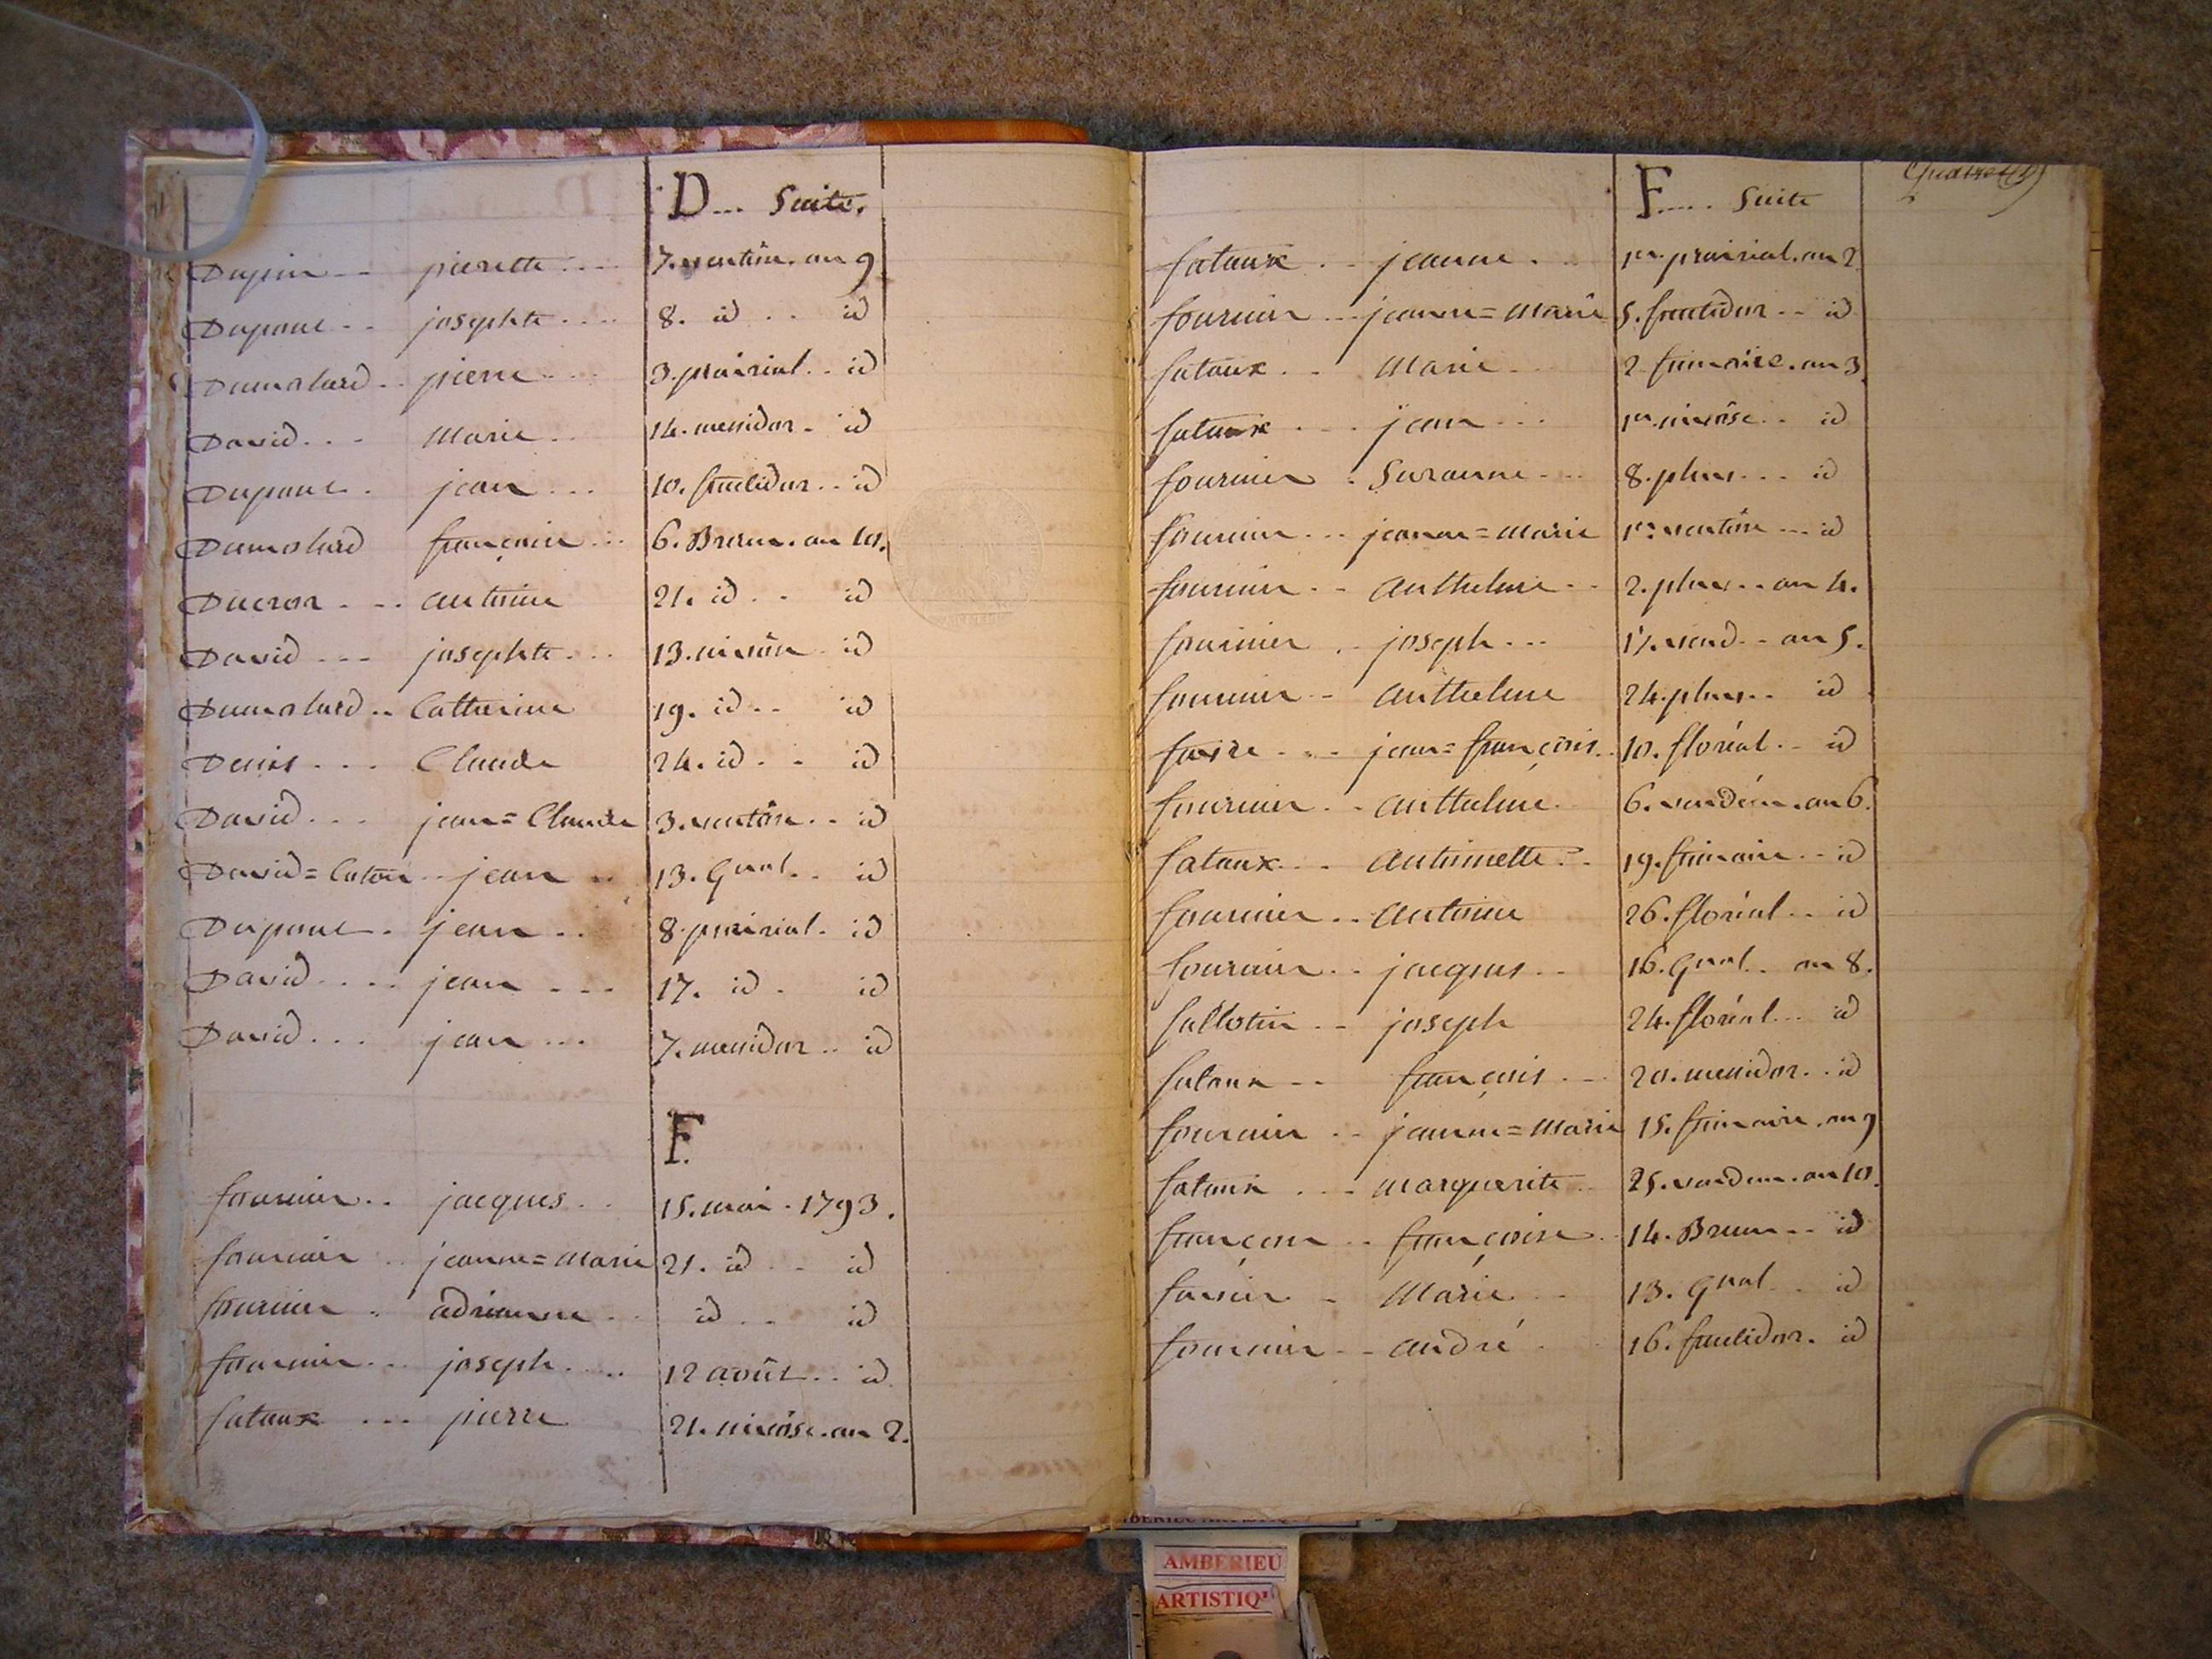 D... Suite.
Dupin... pierette.... 7. ventôse. an 9
Dupont.. josephte.... 8. id.. id
Dumolard.. pierre... 3. prairial.. id
David... Marie.. 14. messidor. id
Dupont. jean... 10. fructidor.. id
Dumolard françoise... 6. Brum. an 10.
Ducros... antoine 21. id.. id
David... josephte... 13. nivôse. id
Dumolard.. Catherine 19. id.. id
Denis... Claude 24. id.. id
David... jean=Claude 3. ventôse.. id
David=Caton.. jean.. 13. Gnal.. id
Dupont. jean.. 8. prairial. id
David.... jean... 17. id. id
David... jean... 7. messidor.. id
F.
fournier.. jacques.. 15. mai. 1793.
fournier.. jeanne=Marie 21. id.. id
fournier. adrianne.. id.. id
fournier... joseph..... 12 août.. id
fataux... pierre 21. nivôse. an 2.
F..... Suite
fataux.. jeanne... 1er. prairial. an 2.
fournier... jeanne=Marie 5. fructidor.. id
fataux.. Marie... 2. frimaire. an 3.
fataux... jean... 1er. nivôse.. id
fournier. Suzanne... 8. pluv... id
fournier... jeanne=Marie 1er. ventôse... id
fournier.. anthelme.. 2. pluv... an 4.
fournier.. joseph... 17. vend.. an 5.
fournier.. anthelme 24. pluv.. id
favre.... jean=françois.. 10. floréal.. id
fournier.. anthelme. 6. vendém. an 6.
fataux... antoinette.. 19. frimaire.. id
fournier.. antoine 26. floréal.. id
fournier.. jacques.. 16. Gnal.. an 8.
fallotin.. joseph 24. floréal... id
fataux.. françois... 20. messidor.. id
fournier.. jeanne=Marie 15. frimaire. an 9
fataux... marguerite.. 25. vendem. an 10.
françon.. françoise.. 14. Brum... id
Marie... 13. Gnal.. id
fournier.. andré. 16. fructidor. id
AMBERIEU
ARTISTIQ